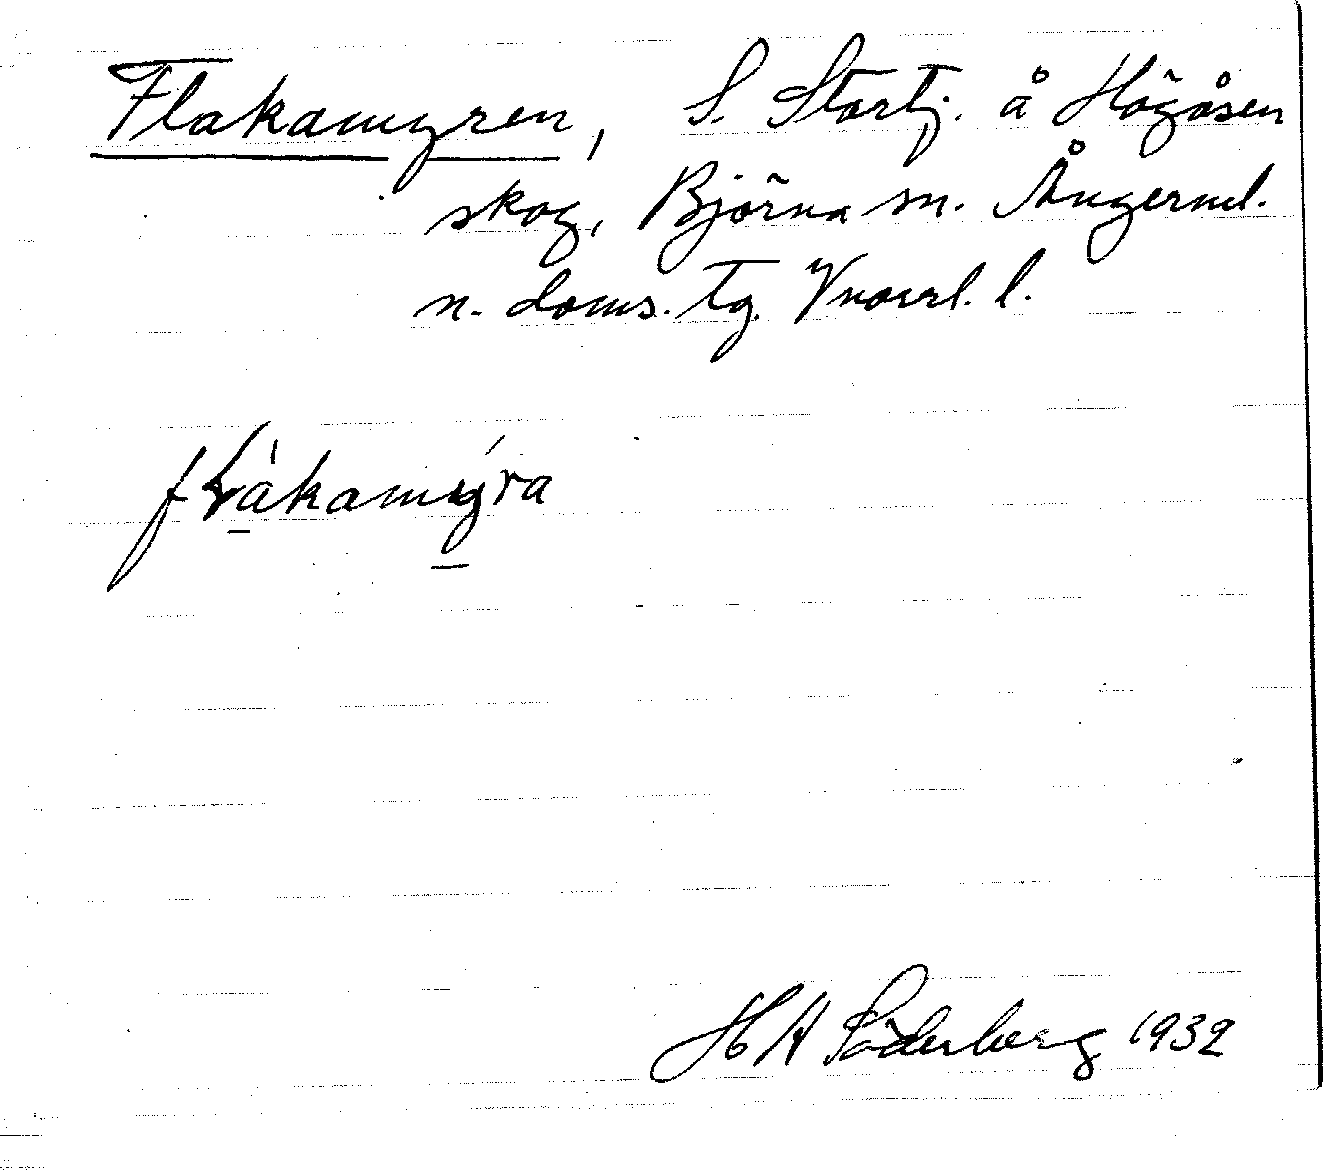 Flakamyren, S. Startj. å Högåsen
skog, Björna sn. Ångerml.
n. doms. tg. Vnorrl. l.
flàkamýra
H A Söderberg 1932